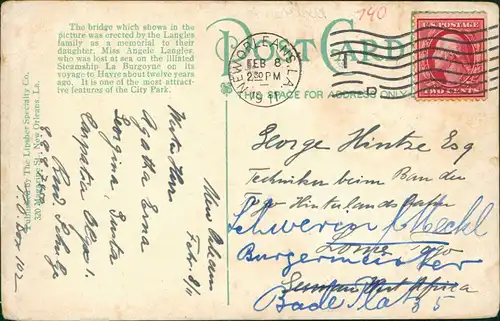 The bridge which shows in the
picture was erected by the Langles
family as a memorial to their
daughter, Miss Angele Langles,
who was lost at sea on the illfated
Steamship La Burgoyne on its
voyage to Havre about twelve years
ago. It is one of the most attract-
ive features of the City Park.
POST CARD
190
NEW ORLEANS, LA.
FEB 8
2:30 PM
1911
THIS SPACE FOR ADDRESS ONLY
U.S. POSTAGE
TWO CENTS
Published by The Lipsher Specialty Co.
320 Magazine St., New Orleans, La.
New Orleans
Febr. 8/11
Agatha Erna
Georgina
George Hintze Esq
Techniker beim Bau der
Hinterlandsbahn
Schwerin / Meckl
Lome Togo
Burgermeister
Africa
Bade Platz